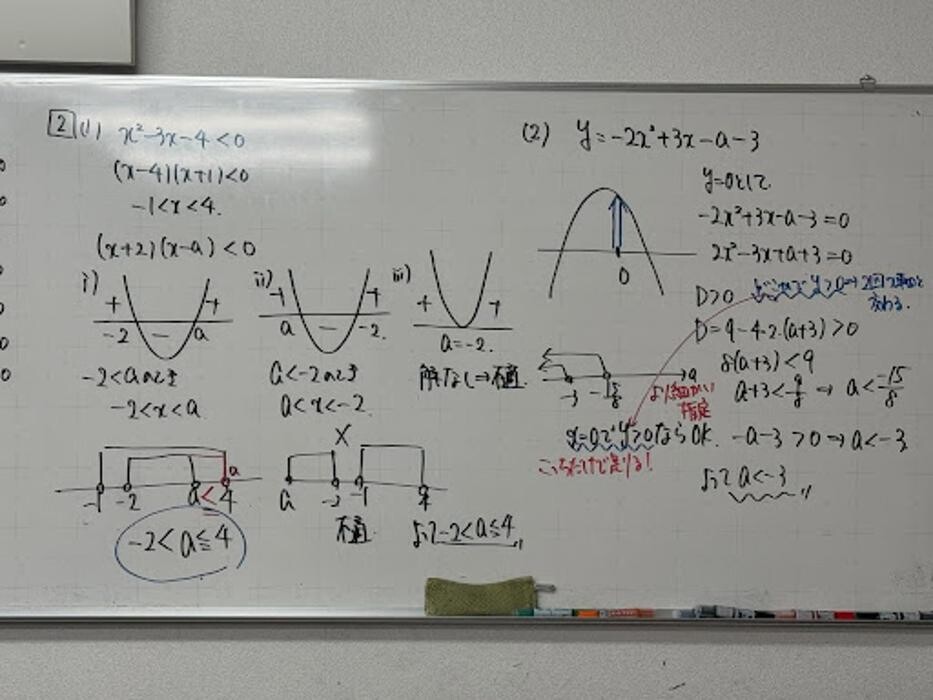 2 (1) x²-3x-4<0
(x-4)(x+1)<0
-1<x<4.
(x+2)(x-a)<0
i)
+ - +
-2 a
-2<aのとき
-2<x<a
ii)
+ - +
a -2.
a<-2のとき
a<x<-2.
iii)
+ +
a=-2.
解なし⇒不適.
-1 -2 a<4 a
-2<a≦4
X
a -2 -1 4
不適
よって-2<a≦4
(2) y=-2x²+3x-a-3
0
y=0として.
-2x²+3x-a-3=0
2x²-3x+a+3=0
D>0
D=9-4・2・(a+3)>0
8(a+3)<9
a+3<9/8 → a<-15/8
-3 -15/8 a
より細かい
指定
x=0でy>0ならOK. -a-3>0⇒a<-3
こっちだけで足りる!
よってa<-3